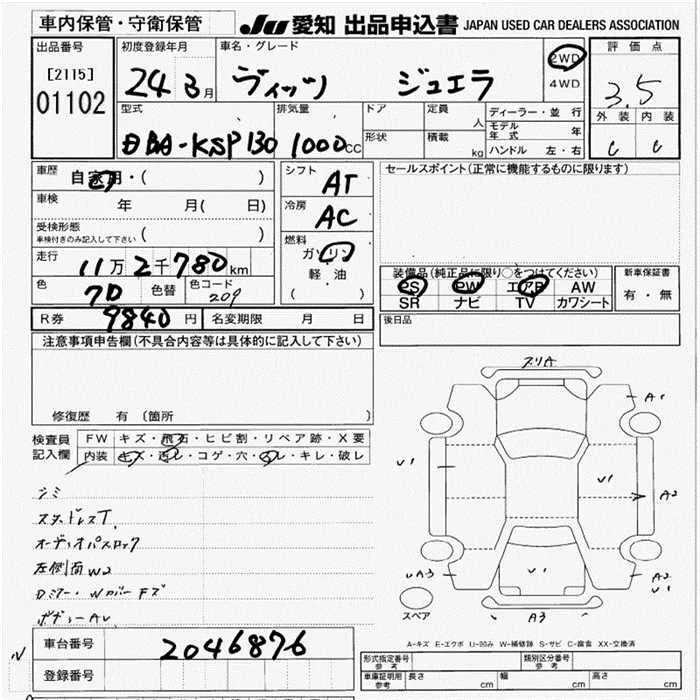 車内保管・守衛保管
JU 愛知 出品申込書 JAPAN USED CAR DEALERS ASSOCIATION
出品番号
[2115]
01102
初度登録年月
24 3月
車名・グレード
ヴィッツ ジュエラ
2WD
4WD
評価点
3.5
外装 内装
C C
型式
DBA-KSP130
排気量
1000cc
ドア
形状
定員 人
積載 kg
ディーラー・並行
モデル年式 年
ハンドル 左・右
車歴
自家用・( )
車検
年 月( 日)
受検形態
車検付きのみ記入して下さい ( )
走行
11万2千780km
色
70
色替
色コード
209
R券 9840円 名変期限 月 日
シフト
AT
冷房
AC
燃料
ガソリン
軽油
( )
セールスポイント(正常に機能するものに限ります)
装備品(純正品に限り○をつけてください)
PS PW エアB AW
SR ナビ TV カワシート
新車保証書
有・無
後日品
注意事項申告欄(不具合内容等は具体的に記入して下さい)
修復歴 有 (箇所 )
検査員記入欄
FW キズ・飛石・ヒビ割・リペア跡・X要
内装 キズ・汚レ・コゲ・穴・スレ・キレ・破レ
ジミ
スタッドレスT.
オーディオパスロック
左側面W2
Dミラー・WカバーFズ
ボディーAU
スリA
A1
U1
U1
A2
UA3
U1
A2
U1
A3
スペア
A-キズ E-エクボ U-凹み W-補修跡 S-サビ C-腐食 XX-交換済
車台番号
2046876
登録番号
形式指定番号
参考
類別区分番号
参考
車庫証明用
参考
長さ cm 幅 cm 高さ cm